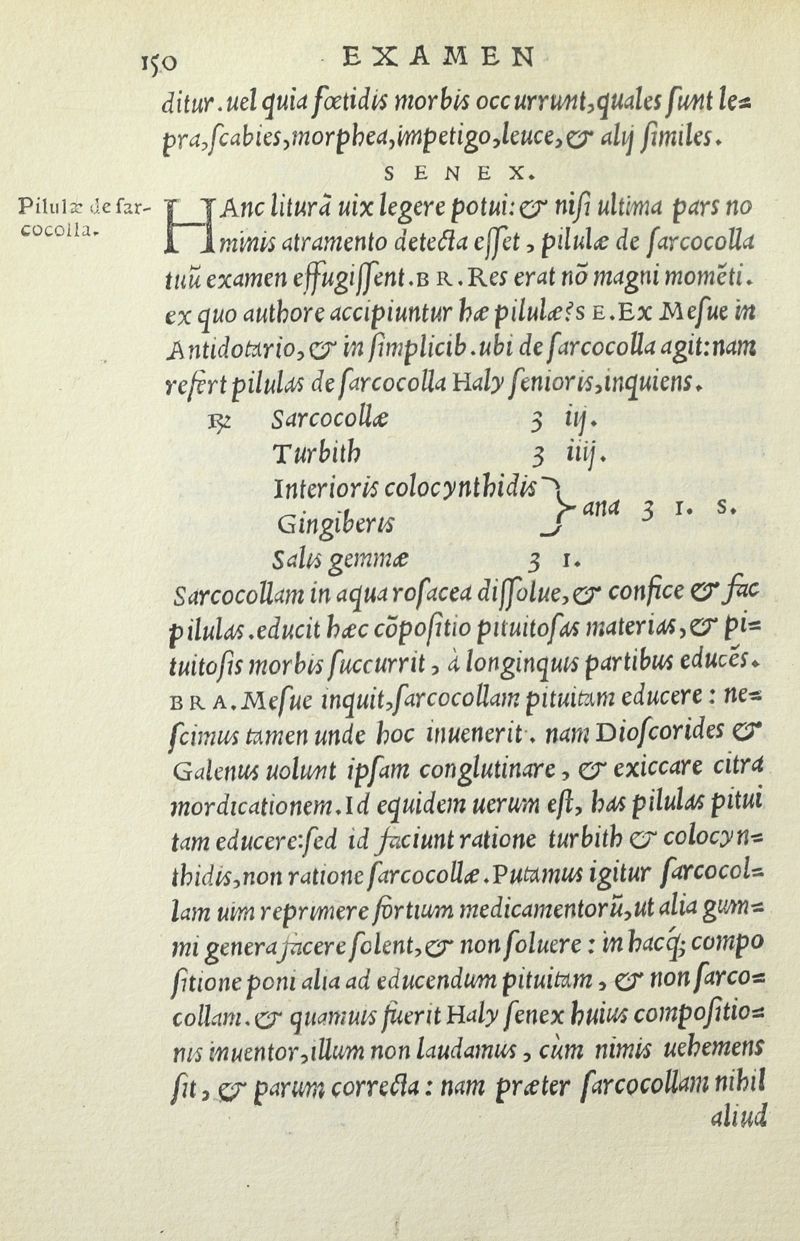 150 EXAMEN
ditur.uel quia fœtidis morbis occurrunt,quales ſunt le=
pra,ſcabies,morphea,impetigo,leuce,& alij ſimiles.
SENEX.
Pilulæ de ſar-
cocolla.
HAnc liturā uix legere potui:& niſi ultima pars no
minis atramento detecta eſſet, pilulæ de ſarcocolla
tuū examen effugiſſent.BR.Res erat nō magni momēti.
ex quo authore accipiuntur hæ pilulæ?SE.Ex Meſue in
Antidotario,& in ſimplicib.ubi de ſarcocolla agit:nam
refert pilulas de ſarcocolla Haly ſenioris,inquiens.
℞ Sarcocollæ ʒ iij.
Turbith ʒ iiij.
Interioris colocynthidis
Gingiberis } ana ʒ 1. s.
Salis gemmæ ʒ 1.
Sarcocollam in aqua roſacea diſſolue,& confice & fac
pilulas.educit hæc cōpoſitio pituitoſas materias,& pi=
tuitoſis morbis ſuccurrit, à longinquis partibus educēs.
BRA.Meſue inquit,ſarcocollam pituitam educere: ne=
ſcimus tamen unde hoc inuenerit. nam Dioſcorides &
Galenus uolunt ipſam conglutinare, & exiccare citra
mordicationem.Id equidem uerum eſt, has pilulas pitui
tam educere:ſed id faciunt ratione turbith & colocyn=
thidis,non ratione ſarcocollæ.Putamus igitur ſarcocol=
lam uim reprimere fortium medicamentorū,ut alia gum=
mi genera facere ſolent,& non ſoluere: in hacq́; compo
ſitione poni alia ad educendum pituitam, & non ſarco=
collam.& quamuis fuerit Haly ſenex huius compoſitio=
nis inuentor,illum non laudamus, cùm nimis uehemens
ſit, & parum correcta: nam præter ſarcocollam nihil
aliud